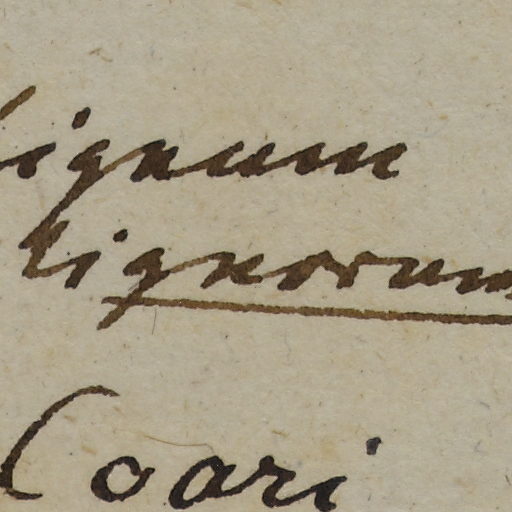 lignum
lignorum
Coari